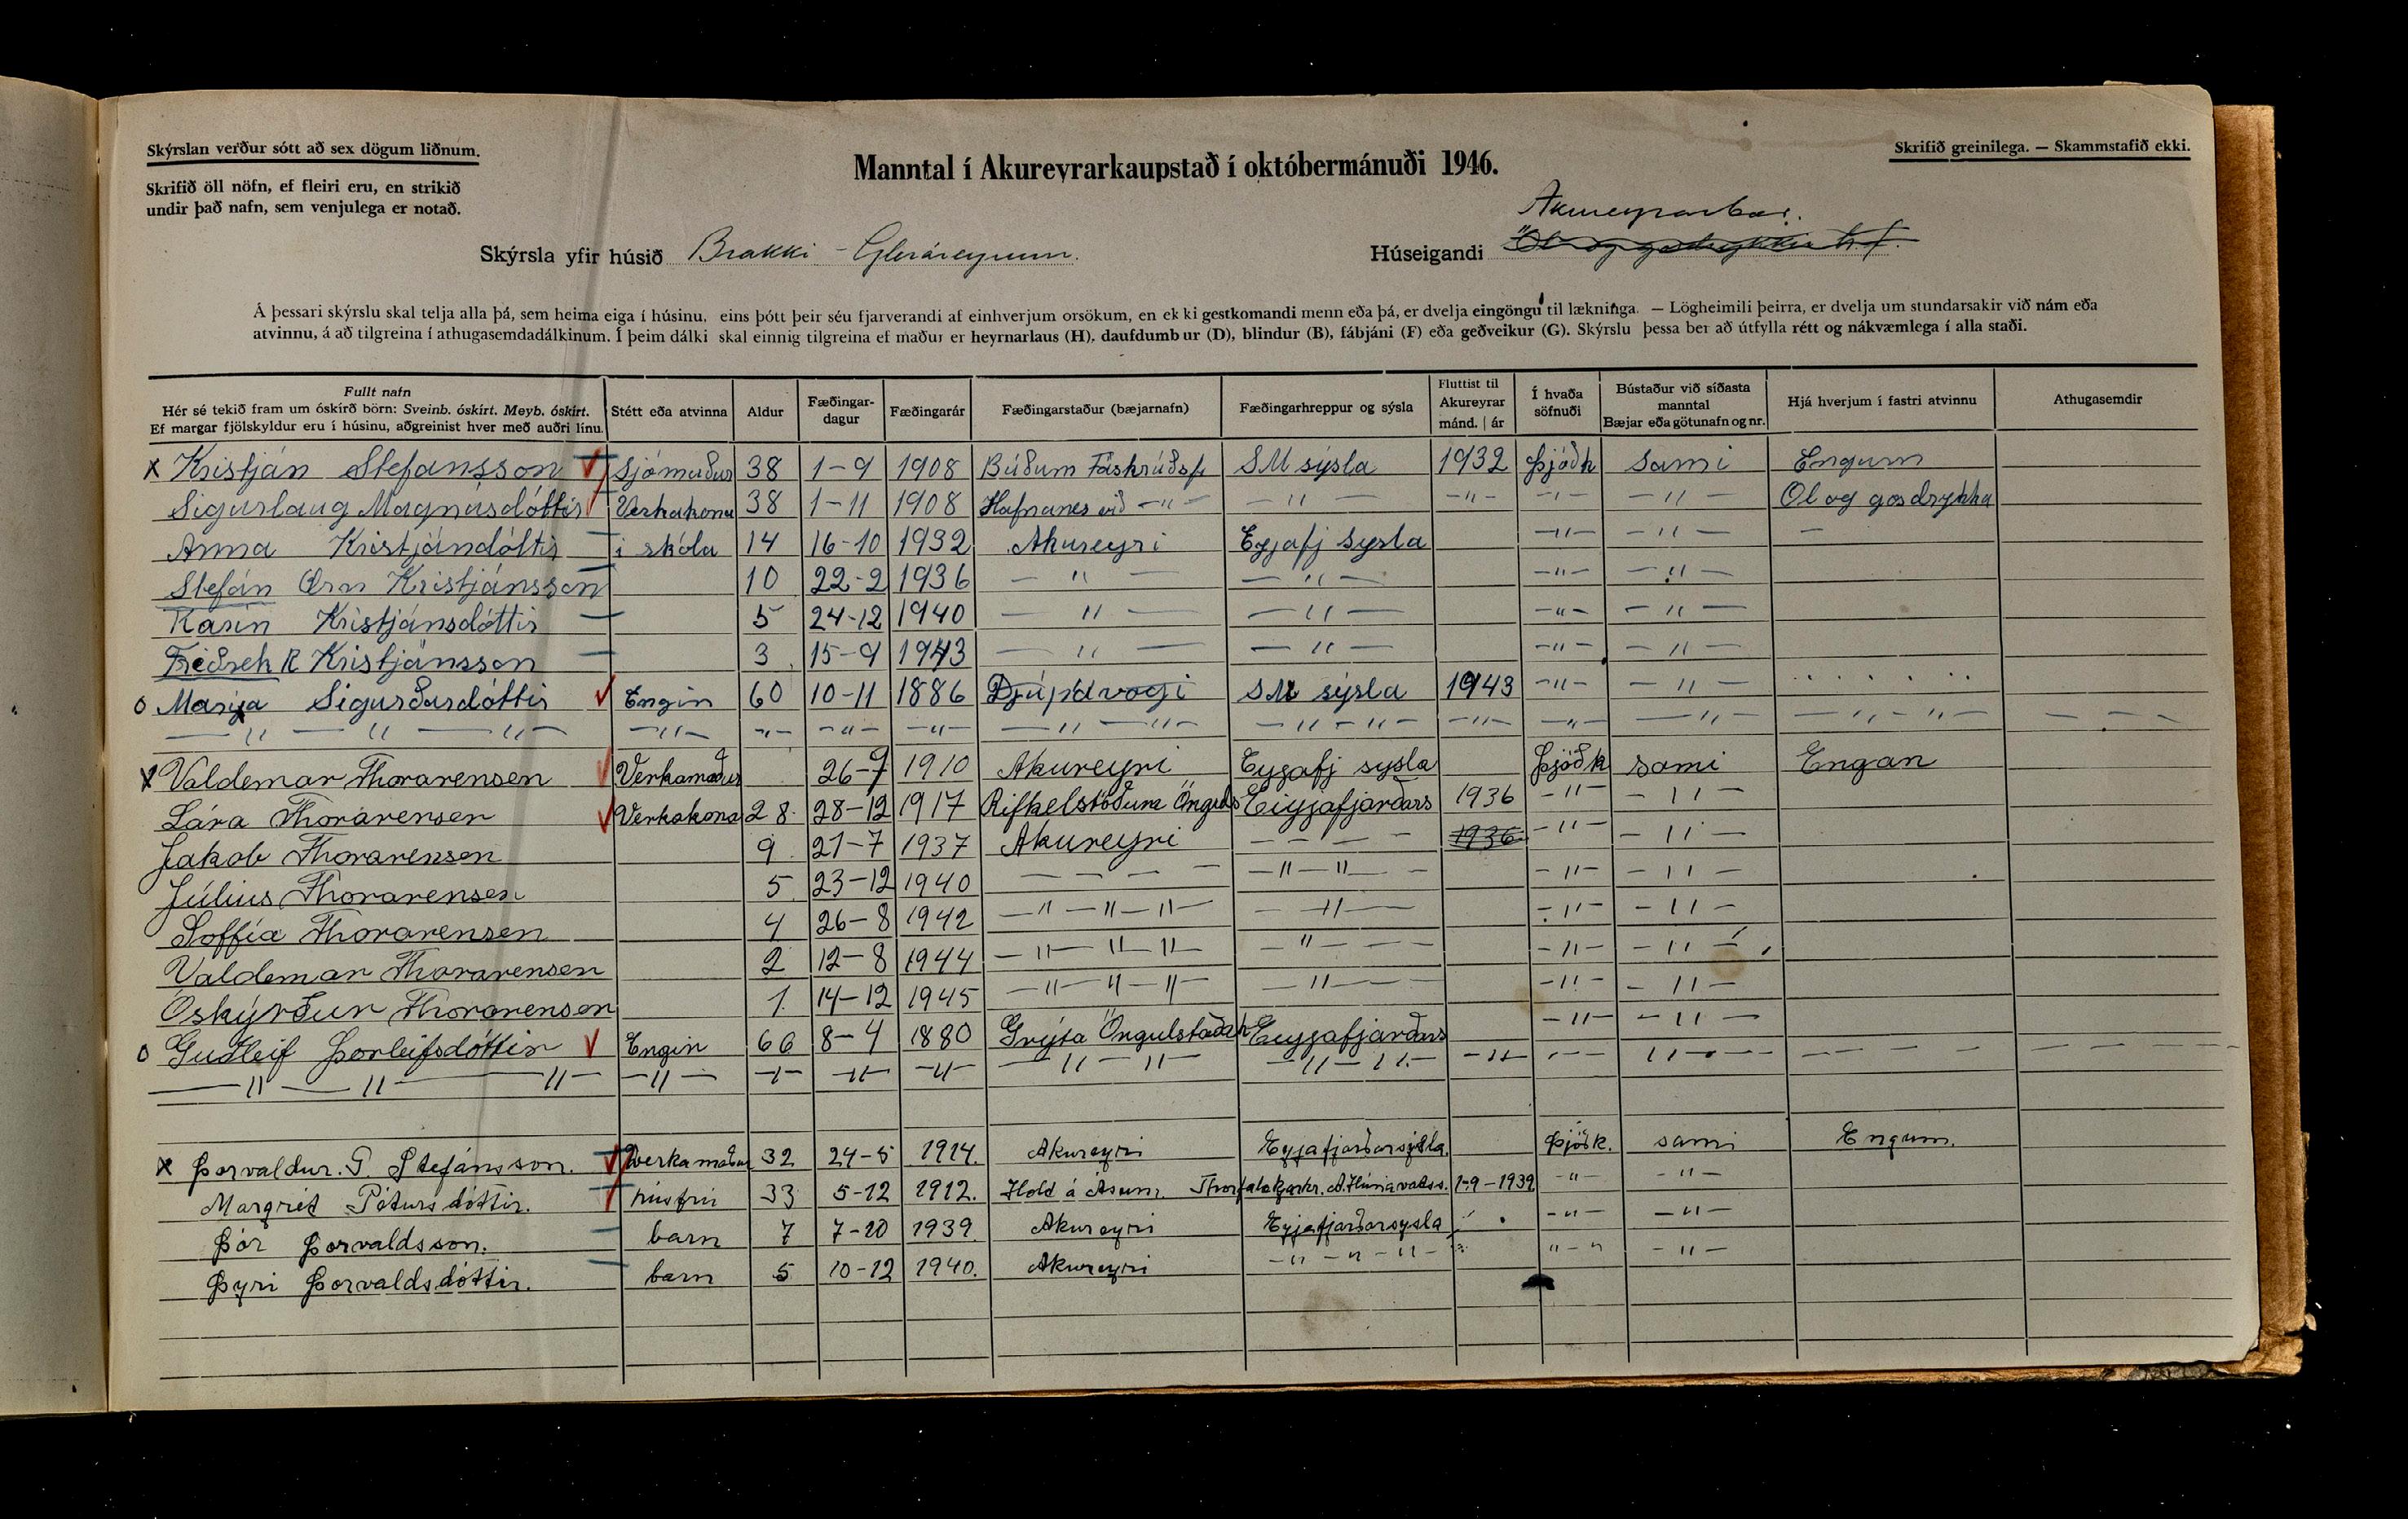 Skýrslan verður sótt að sex dögum liðnum.
Skrifið greinilega. — Skammstafið ekki.
Manntal í Akureyrarkaupstað í októbermánuði 1946.
Skrifið öll nöfn, ef fleiri eru, en strikið
undir það nafn, sem venjulega er notað.
Akureyrarbær.
Skýrsla yfir húsið Brakki - Gleráreyrum. Húseigandi Öl og gosdrykkir h.f.
Á þessari skýrslu skal telja alla þá, sem heima eiga í húsinu, eins þótt þeir séu fjarverandi af einhverjum orsökum, en ekki gestkomandi menn eða þá, er dvelja eingöngu til lækninga. — Lögheimili þeirra, er dvelja um stundarsakir við nám eða
atvinnu, á að tilgreina í athugasemdadálkinum. Í þeim dálki skal einnig tilgreina ef maður er heyrnarlaus (H), daufdumbur (D), blindur (B), fábjáni (F) eða geðveikur (G). Skýrslu þessa ber að útfylla rétt og nákvæmlega í alla staði.
Fullt nafn
Hér sé tekið fram um óskírð börn: Sveinb. óskírt. Meyb. óskírt.
Ef margar fjölskyldur eru í húsinu, aðgreinist hver með auðri línu.
Stétt eða atvinna
Aldur
Fæðingar-
dagur
Fæðingarár
Fæðingarstaður (bæjarnafn)
Fæðingarhreppur og sýsla
Fluttist til
Akureyrar
mánd. | ár
Í hvaða
söfnuði
Bústaður við síðasta
manntal
Bæjar eða götunafn og nr.
Hjá hverjum í fastri atvinnu
Athugasemdir
x Kristján Stefansson Sjómaður 38 1-9 1908 Búðum Fáskrúðsf SM sýsla 1932 Þjóðk Sami Engum
Sigurlaug Magnúsdóttir Verkakona 38 1-11 1908 Hafnanes við -"- -"- -"- -"- -"- Ol og gosdrykka
Anna Kristjándóttir i skóla 14 16-10 1932 Akureyri Eyjafj sysla -"- -"- -
Stefán Örn Kristjánsson 10 22-2 1936 -"- -"- -"- -"-
Karin Kristjánsdóttir 5 24-12 1940 -"- -"- -"- -"-
Friðrek R Kristjánsson 3 15-9 1943 -"- -"- -"- -"-
o Marija Sigurðardóttir Engin 60 10-11 1886 Djúpavogi SM sýsla 1943 -"- -"- . . . . . .
-"-"-"- -"- -"- -"- -"- -"-"- -"-"- -"- -"- -"- -"-"- - - -
x Valdemar Thorarensen Verkamaður 26-9 1910 Akureyri Eyjafj sysla Þjóðk sami Engan
Lára Thorarensen Verkakona 28 28-12 1917 Rifkelstöðum Önguls Eyjafjarðars 1936 -"- -"-
Jakob Thorarensen 9 21-7 1937 Akureyri - - - - 1936 -"- -"-
Július Thorarensen 5 23-12 1940 - - - - -"-"- -"- -"-
Soffía Thorarensen 4 26-8 1942 -"-"-"- -"- -"- -"-
Valdemar Thorarensen 2 12-8 1944 -"-"-"- -"- -"- -"-
Óskýrður Thorarensen 1 14-12 1945 -"-"-"- -"- -"- -"-
o Guðleif Þorleifsdóttir Engin 66 8-4 1880 Grýta Öngulstaðah Eyjafjarðars -"- -"-
-"-"-"- -"- -"- -"- -"- -"-"- -"-"- -"- --- "-- - - - - - - -
x Þorvaldur. G. Stefánsson. Verkamaður 32 24-5 1914. Akureyri Eyjafjarðarsýsla. Þjóðk. sami Engum.
Margrét Pétursdóttir. húsfrú 33 5-12 1912. Hold á Ásum. Thorfalækjarhr. A.Húnavatss. 1-9-1939 -"- -"-
Þór Þorvaldsson. barn 7 7-10 1939. Akureyri Eyjafjarðarsysla -"- -"-
Þyri Þorvaldsdóttir. barn 5 10-12 1940. Akureyri -"-"-"- "-" -"-